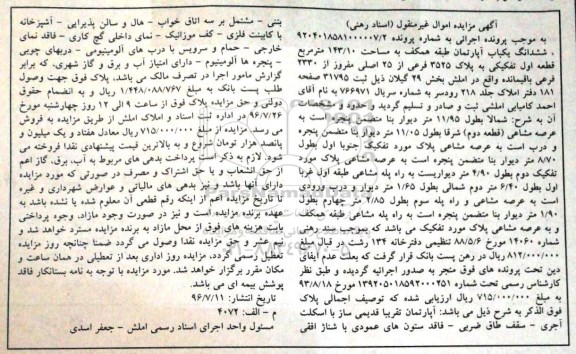 آگهی مزایده اموال غیرمنقول (اسناد رهنی)
به موجب پرونده اجرائی به شماره پرونده ۹۲۰۴۰۱۸۵۸۱۰۰۰۰۰۷/۲
، ششدانگ یکباب آپارتمان طبقه همکف به مساحت ۱۴۳/۱۰ مترمربع
قطعه اول تفکیکی به پلاک ۳۵۲۵ فرعی از ۲۵ اصلی مفروز از ۲۳۳۰
فرعی باقیمانده واقع در املش بخش ۲۹ گیلان ذیل ثبت ۳۱۷۹۵ صفحه
۱۸۱ دفتر املاک جلد ۲۱۸ رودسر به شماره سریال ۷۶۶۹۷۱ به نام آقای
احمد کامیابی املشی ثبت و صادر و تسلیم گردید و حدود و مشخصات
آن به شرح: شمالا بطول ۱۱/۹۵ متر دیوار بنا متضمن پنجره است به
عرصه مشاعی (قطعه دوم) شرقا بطول ۱۱/۰۵ متر دیوار بنا متضمن پنجره
و درب است به عرصه مشاعی پلاک مورد تفکیک جنوبا اول بطول
۸/۷۰ متر دیوار بنا متضمن پنجره است به عرصه مشاعی پلاک مورد
تفکیک دوم بطول ۴/۹۰ متر دیواریست به راه پله مشاعی طبقه اول غربا
اول بطول ۶/۴۰ متر دوم شمالی بطول ۱/۶۵ متر دیوار و درب ورودی
است به عرصه مشاعی و راه پله سوم بطول ۲/۸۵ متر چهارم بطول
۱/۹۰ متر دیوار بنا متضمن پنجره است به راه پله مشاعی طبقه همکف
و به عرصه مشاعی پلاک مورد تفکیک می باشد که بموجب سند رهنی
شماره ۱۴۰۶۰ مورخ ۸۸/۵/۶ تنظیمی دفترخانه ۱۳۴ رشت در قبال مبلغ
۸۱۲/۰۰۰/۰۰۰ ریال در رهن پست بانک قرار گرفت که بعلت عدم ایفای
دین تحت پرونده های فوق منجر به صدور اجرائیه گردیده و طبق نظر
کارشناس رسمی تحت شماره ۱۳۹۲۰۵۰۱۸۵۹۲۰۰۰۲۵۱ مورخ ۹۳/۸/۱۸
به مبلغ ۷۱۵/۰۰۰/۰۰۰ ریال ارزیابی شده که توصیف اجمالی پلاک
فوق الذکر به شرح ذیل می باشد: آپارتمان تقریبا قدیمی ساز با اسکلت
آجری - سقف طاق ضربی - فاقد ستون های عمودی با شناژ افقی
بتنی - مشتمل بر سه اتاق خواب - هال و سالن پذیرایی - آشپزخانه
با کابینت فلزی - کف موزائیک - نمای داخلی گچ کاری - فاقد نمای
خارجی - حمام و سرویس با درب های آلومینیومی - دربهای چوبی
- پنجره ها آلومینیوم - دارای امتیاز آب و برق و گاز شهری، که برابر
گزارش مامور اجرا در تصرف مالک می باشد، پلاک فوق جهت وصول
طلب پست بانک به مبلغ ۱/۴۴۸/۰۸۸/۷۶۷ ریال و به انضمام حقوق
دولتی و حق مزایده پلاک فوق از ساعت ۹ الی ۱۲ روز چهارشنبه مورخ
۹۶/۷/۲۶ در اداره ثبت اسناد و املاک املش از طریق مزایده به فروش
می رسد. مزایده از مبلغ ۷۱۵/۰۰۰/۰۰۰ ریال معادل هفتاد و یک میلیون و
پانصد هزار تومان شروع و به بالاترین قیمت پیشنهادی نقدا فروخته می
شود. لازم به ذکر است پرداخت بدهی های مربوط به آب، برق، گاز اعم
از حق انشعاب و یا حق اشتراک و مصرف در صورتی که مورد مزایده
دارای آنها باشد و نیز بدهی های مالیاتی و عوارض شهرداری و غیره
تا تاریخ مزایده اعم از اینکه رقم قطعی آن معلوم شده یا نشده باشد به
عهده برنده مزایده است و نیز در صورت وجود مازاد، وجوه پرداختی
بابت هزینه های فوق از محل مازاد به برنده مزایده مسترد خواهد شد و
نیم عشر و حق مزایده نقدا وصول می گردد ضمنا چنانچه روز مزایده
تعطیل رسمی گردد، مزایده روز اداری بعد از تعطیلی در همان ساعت و
مکان مقرر برگزار خواهد شد. مورد مزایده با توجه به نامه بستانکار فاقد
پوشش بیمه ای می باشد.
تاریخ انتشار: ۹۶/۷/۱۱
م - الف: ۴۰۷۲
مسئول واحد اجرای اسناد رسمی املش - جعفر اسدی